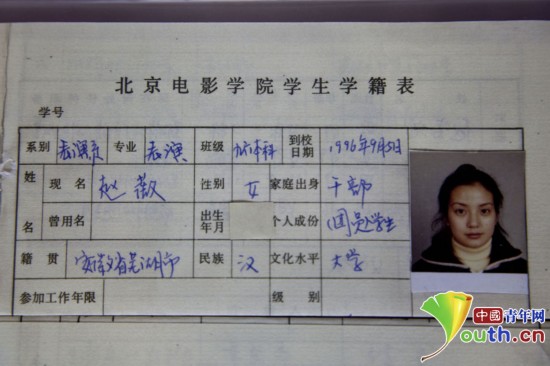 北京电影学院学生学籍表
学号
系别 表演系 专业 表演 班级 96本科 到校日期 1996年9月5日
姓名 现名 赵薇 性别 女 家庭出身 干部
曾用名 出生年月 个人成份 (团员)学生
籍贯 安徽省芜湖市 民族 汉 文化水平 大学
参加工作年限 级别
中國青年网
Youth.cn